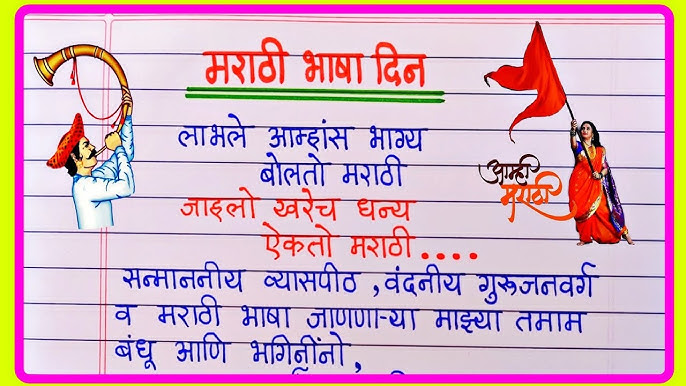 मराठी भाषा दिन
लाभले आम्हांस भाग्य
बोलतो मराठी
जाहलो खरेच धन्य
ऐकतो मराठी....
आम्ही
मराठी
सन्माननीय व्यासपीठ, वंदनीय गुरुजनवर्ग
व मराठी भाषा जाणणा-या माझ्या तमाम
बंधू आणि भगिनींनो,